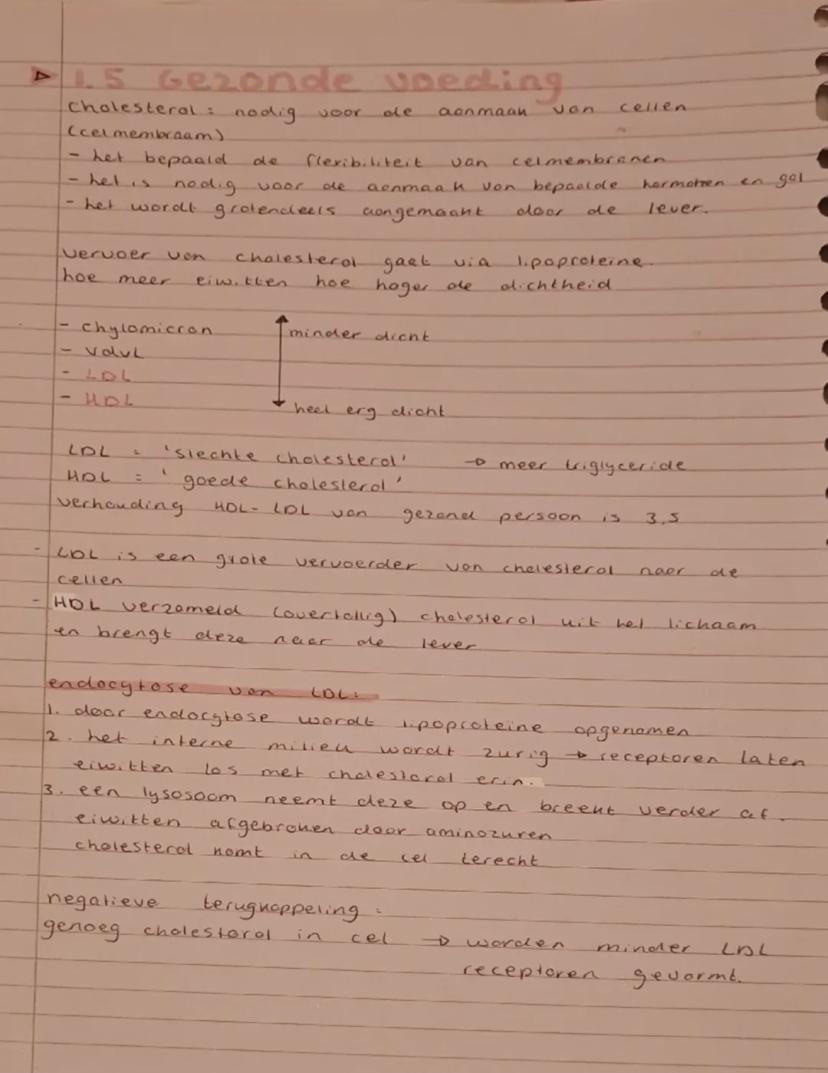 ▷ 1.5 Gezonde voeding
cholesterol: nodig voor de aanmaak van cellen
(celmembraam)
- het bepaald de flexibiliteit van celmembranen
- het is nodig voor de aanmaak van bepaalde hormonen en gal
- het wordt grotendeels aangemaakt door de lever.
vervoer van cholesterol gaat via lipoproteine.
hoe meer eiwitten hoe hoger de dichtheid
- chylomicron
minder dicht
- VdvL
- LDL
- HDL
heel erg dicht
LDL = 'slechte cholesterol' → meer triglyceride
HDL = 'goede cholesterol'
verhouding HDL- LDL van gezond persoon is 3,5
- LDL is een grote vervoerder van cholesterol naar de
cellen
- HDL verzameld (overtollig) cholesterol uit het lichaam
en brengt deze naar de lever
endocytose van LDL:
1. door endocytose wordt lipoproteine opgenomen
2. het interne milieu wordt zurig → receptoren laten
eiwitten los met cholesterol erin.
3. een lysosoom neemt deze op en breekt verder af.
eiwitten afgebroken door aminozuren
cholesterol komt in de cel terecht
negatieve terugkoppeling:
genoeg cholesterol in cel → worden minder LDL
receptoren gevormt.